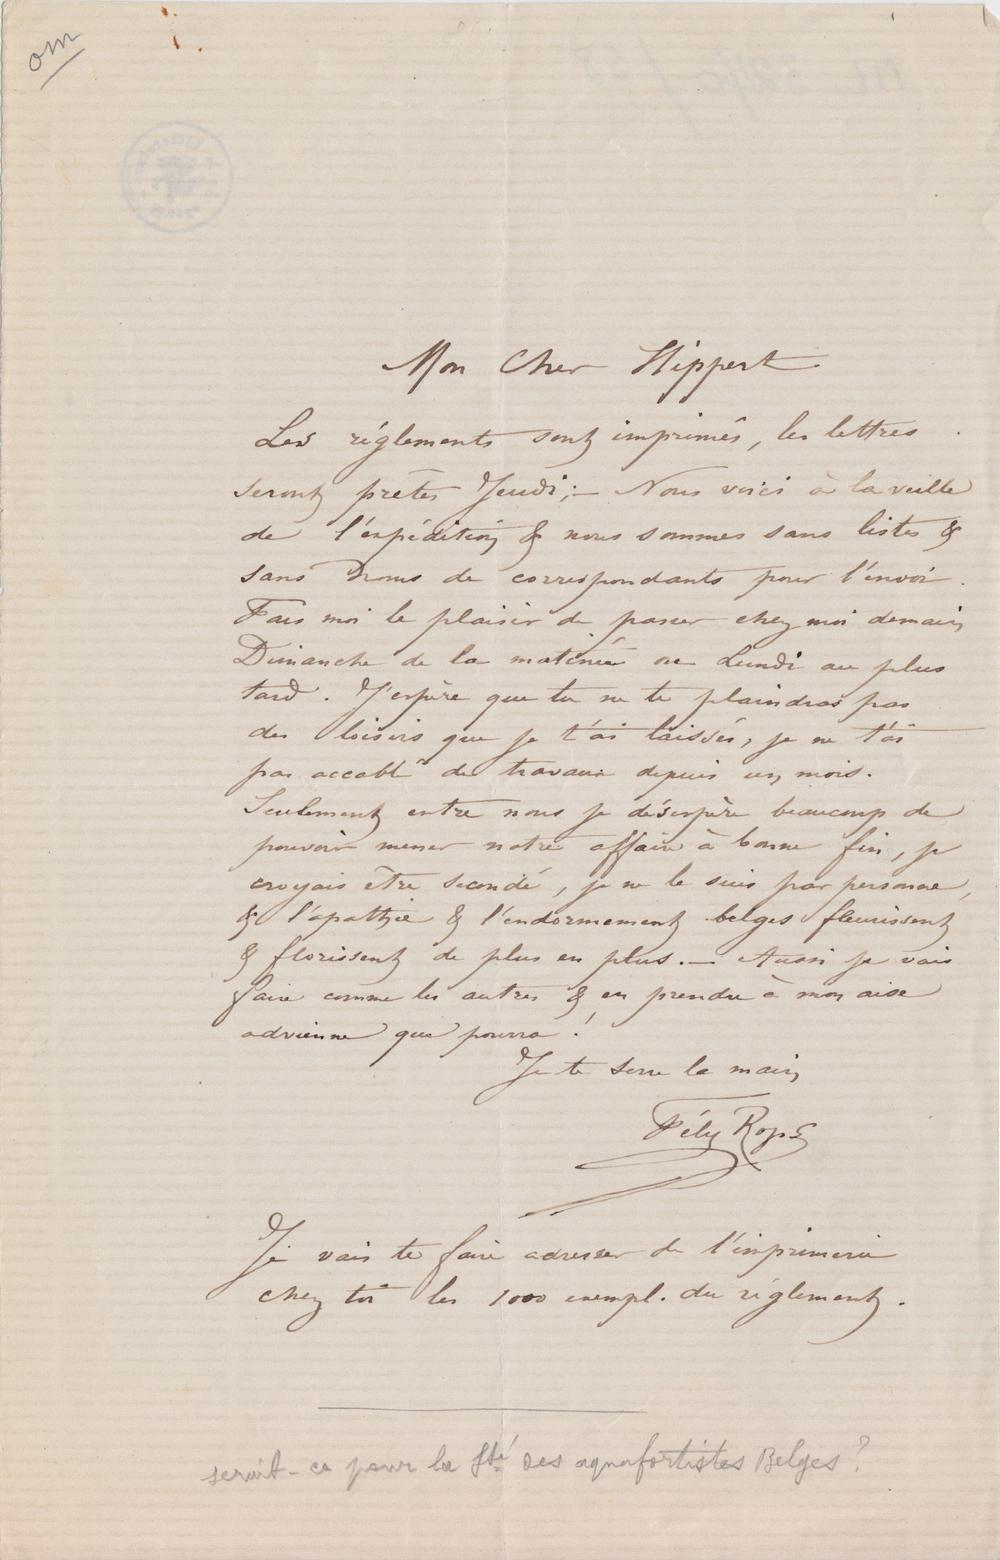 om
Mon Cher Hippert
Les réglements sont imprimés, les lettres
seront prêtes Jeudi; — Nous voici à la veille
de l'expédition & nous sommes sans listes &
sans noms de correspondants pour l'envoi.
Fais moi le plaisir de passer chez moi demain
Dimanche de la matinée ou Lundi au plus
tard. J'espère que tu ne te plaindras pas
des loisirs que je t'ai laissés, je ne t'ai
pas accablé de travaux depuis un mois.
Seulement entre nous je désespère beaucoup de
pouvoir mener notre affaire à bonne fin, je
croyais être secondé, je ne le suis par personne,
& l'apathie & l'endormement belges fleurissent
& florissent de plus en plus. — Aussi je vais
faire comme les autres & en prendre à mon aise
advienne que pourra!
Je te serre la main
Fély Rops
Je vais te faire adresser de l'imprimerie
chez toi les 1000 exempl. du réglement.
serait-ce pour la Sté des aquafortistes Belges?